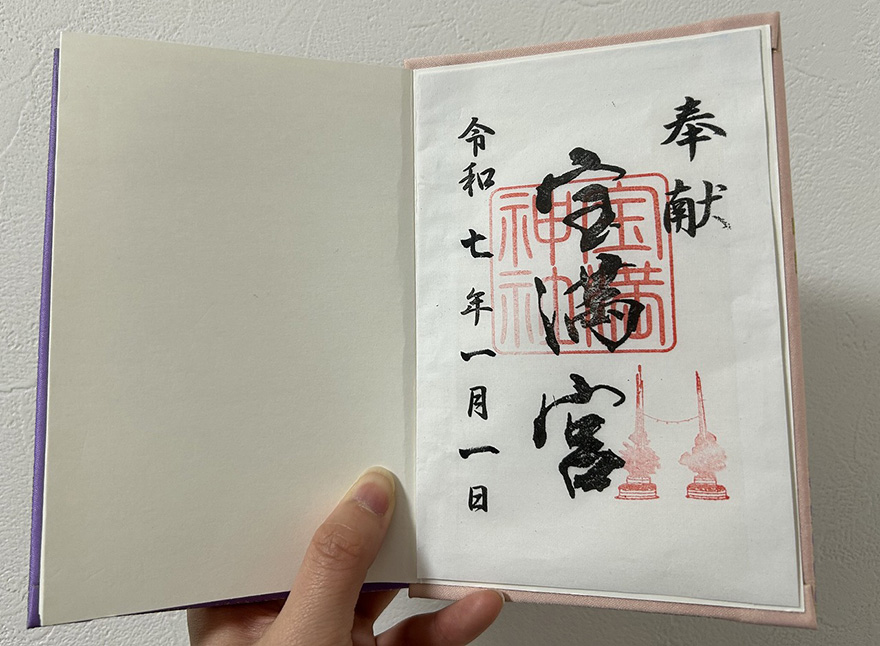 奉献
宝満宮
宝満神社
令和七年一月一日